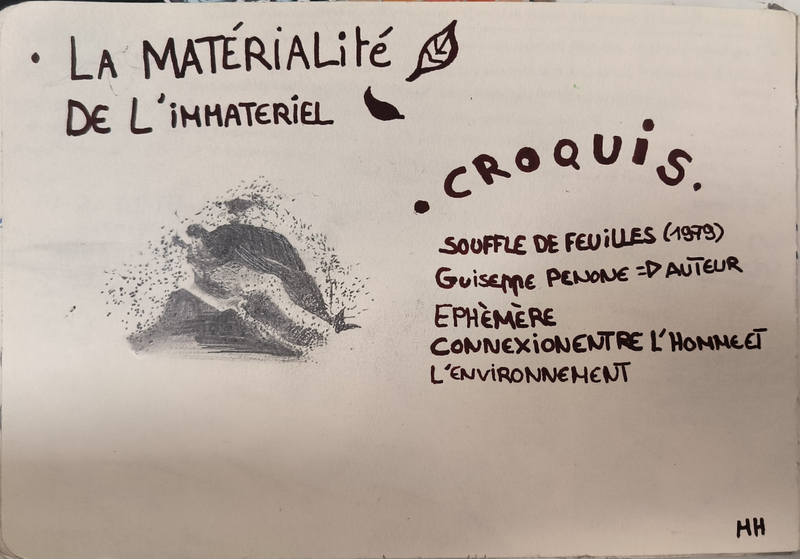 • LA MATÉRIALITÉ
DE L'IMMATERIEL
• CROQUIS.
SOUFFLE DE FEUILLES (1979)
GUISEPPE PENONE => AUTEUR
EPHÈMÈRE
CONNEXION ENTRE L'HOMME ET
L'ENVIRONNEMENT
HH